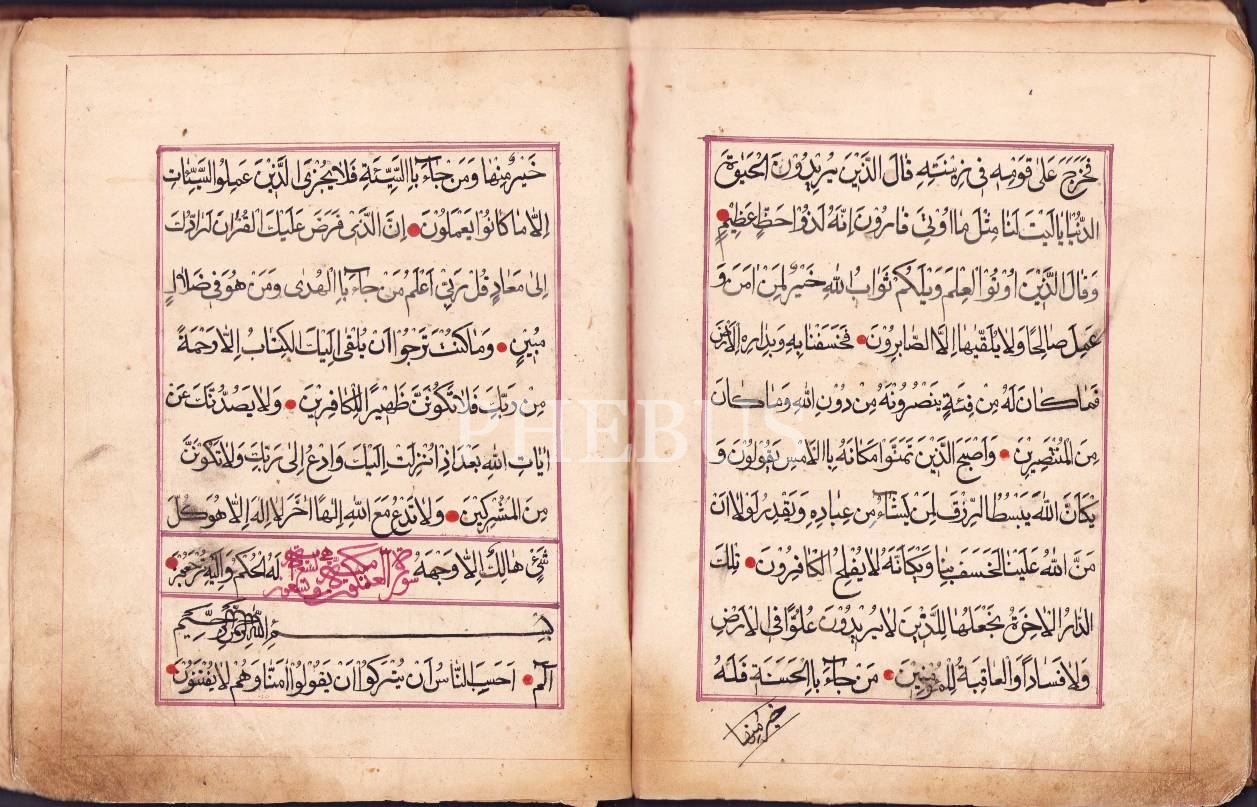 فَخَرَجَ عَلٰى قَوْمِهٖ فِى زٖينَتِهٖ قَالَ الَّذٖينَ يُرٖيدُونَ الْحَيٰوةَ
الدُّنْيَا يَا لَيْتَ لَنَا مِثْلَ مَا اُوتِىَ قَارُونُ اِنَّهُ لَذُو حَظٍّ عَظٖيمٍ
وَقَالَ الَّذٖينَ اُوتُوا الْعِلْمَ وَيْلَكُمْ ثَوَابُ اللّٰهِ خَيْرٌ لِمَنْ اٰمَنَ وَ
عَمِلَ صَالِحًا وَلَا يُلَقّٰيهَا اِلَّا الصَّابِرُونَ فَخَسَفْنَا بِهٖ وَبِدَارِهِ الْاَرْضَ
فَمَا كَانَ لَهُ مِنْ فِئَةٍ يَنْصُرُونَهُ مِنْ دُونِ اللّٰهِ وَمَا كَانَ
مِنَ الْمُنْتَصِرٖينَ وَاَصْبَحَ الَّذٖينَ تَمَنَّوْا مَكَانَهُ بِالْاَمْسِ يَقُولُونَ وَ
يْكَاَنَّ اللّٰهَ يَبْسُطُ الرِّزْقَ لِمَنْ يَشَآءُ مِنْ عِبَادِهٖ وَيَقْدِرُ لَوْلَا اَنْ
مَنَّ اللّٰهُ عَلَيْنَا لَخَسَفَ بِنَا وَيْكَاَنَّهُ لَا يُفْلِحُ الْكَافِرُونَ تِلْكَ
الدَّارُ الْاٰخِرَةُ نَجْعَلُهَا لِلَّذٖينَ لَا يُرٖيدُونَ عُلُوًّا فِى الْاَرْضِ
وَلَا فَسَادًا وَالْعَاقِبَةُ مَنْ جَآءَ بِالْحَسَنَةِ فَلَهُ
خير منها
خَيْرٌ مِنْهَا وَمَنْ جَآءَ بِالسَّيِّئَةِ فَلَا يُجْزَى الَّذٖينَ عَمِلُوا السَّيِّئَاتِ
اِلَّا مَا كَانُوا يَعْمَلُونَ اِنَّ الَّذٖى فَرَضَ عَلَيْكَ الْقُرْاٰنَ لَرَادُّكَ
اِلٰى مَعَادٍ قُلْ رَبّٖى اَعْلَمُ مَنْ جَآءَ بِالْهُدٰى وَمَنْ هُوَ فٖى ضَلَالٍ
مُبٖينٍ وَمَا كُنْتَ تَرْجُوا اَنْ يُلْقٰى اِلَيْكَ الْكِتَابُ اِلَّا رَحْمَةً
مِنْ رَبِّكَ فَلَا تَكُونَنَّ ظَهٖيرًا لِلْكَافِرٖينَ وَلَا يَصُدُّنَّكَ عَنْ
اٰيَاتِ اللّٰهِ بَعْدَ اِذْ اُنْزِلَتْ اِلَيْكَ وَادْعُ اِلٰى رَبِّكَ وَلَا تَكُونَنَّ
مِنَ الْمُشْرِكٖينَ وَلَا تَدْعُ مَعَ اللّٰهِ اِلٰهًا اٰخَرَ لَا اِلٰهَ اِلَّا هُوَ كُلُّ
شَىْءٍ هَالِكٌ اِلَّا وَجْهَهُ سورة العنكبوت لَهُ الْحُكْمُ وَاِلَيْهِ تُرْجَعُونَ
بِسْمِ اللّٰهِ الرَّحْمٰنِ الرَّحٖيمِ
الٓمٓ اَحَسِبَ النَّاسُ اَنْ يُتْرَكُوا اَنْ يَقُولُوا اٰمَنَّا وَهُمْ لَا يُفْتَنُونَ
PHEBUS